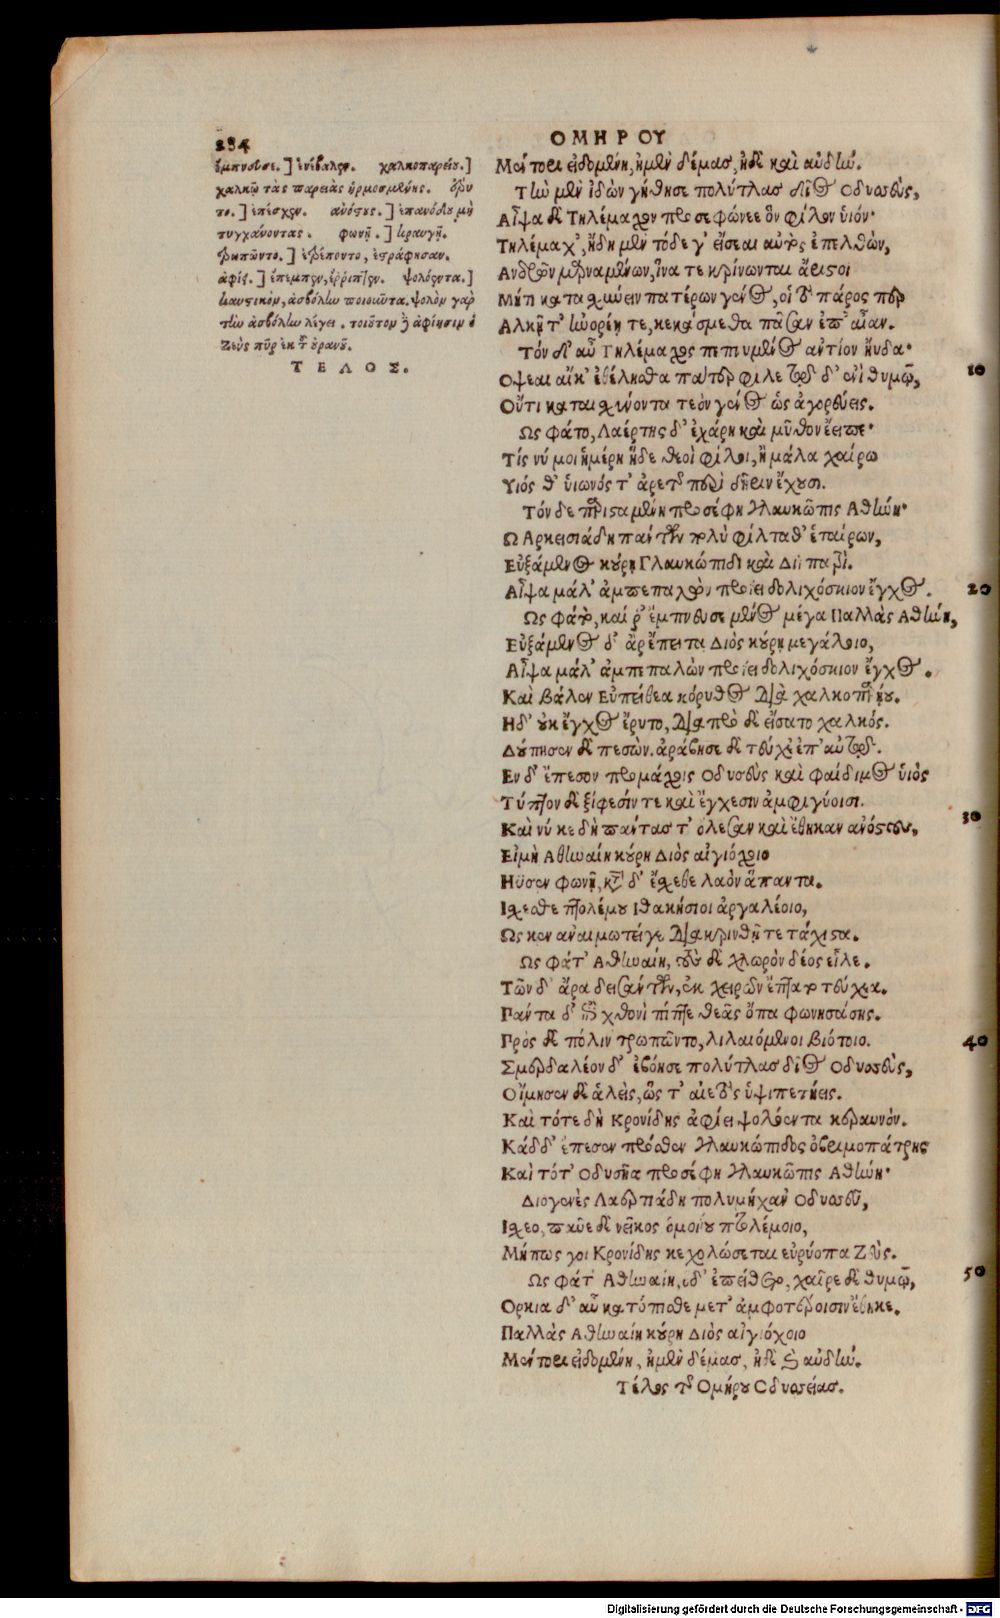 234
ΟΜΗΡΟΥ
ἔμπνευσε.] ἐνέβαλεν. χαλκοπαρείου.]
χαλκῷ τὰς παρειὰς ἡρμοσμένης. ἔρυ
το.] ἐπέσχεν. ἀνόστους.] ἐπανόδου μὴ
τυγχάνοντας. φωνῇ.] κραυγῇ.
τρωπῶντο.] ἐτρέποντο, ἐστράφησαν.
ἀφίει.] ἔπεμπεν, ἔρριπτεν. ψολόεντα.]
καυστικὸν, ἀσβόλην ποιοῦντα. ψολὸν γὰρ
τὴν ἀσβόλην λέγει. τοιοῦτον γὰρ ἀφίησιν ὁ
Ζεὺς πῦρ ἐκ τοῦ οὐρανοῦ.
ΤΕΛΟΣ.
Μέντορι εἰδομένη, ἠμὲν δέμας, ἠδὲ καὶ αὐδήν.
Τὴν μὲν ἰδὼν γήθησε πολύτλας δῖος Οδυσσεὺς,
Αἶψα δὲ Τηλέμαχον προσεφώνεε ὃν φίλον υἱόν·
Τηλέμαχ', ἤδη μὲν τόδε γ' εἴσεαι αὐτὸς ἐπελθὼν,
Ανδρῶν μαρναμένων, ἵνα τε κρίνονται ἄριστοι
Μήτι καταισχύνειν πατέρων γένος, οἳ τὸ πάρος περ
Αλκῇ τ' ἠνορέῃ τε, κεκάσμεθα πᾶσαν ἐπ' αἶαν.
Τόν δ' αὖ Τηλέμαχος πεπνυμένος αντίον ηὔδα·
Οψεαι αἴκ' ἐθέλησθα πάτερ φίλε τῷδ' ἐνὶ θυμῷ,
Οὔτι καταισχύνοντα τεὸν γένος ὡς ἀγορεύεις.
Ως φάτο, Λαέρτης δ' ἐχάρη καὶ μῦθον ἔειπε·
Τίς νύ μοι ἡμέρη ἥδε θεοὶ φίλοι, ἦ μάλα χαίρω
Υιός θ' υἱωνός τ' ἀρετῆς περὶ δῆριν ἔχουσι.
Τόν δε παρισταμένη προσέφη γλαυκῶπις Αθήνη·
Ω Αρκεισιάδη πάντων πολὺ φίλταθ' ἑταίρων,
Εὐξάμενος κούρῃ Γλαυκώπιδι καὶ Διῒ πατρὶ.
Αἶψα μάλ' ἀμπεπαλὼν προΐει δολιχόσκιον ἔγχος.
Ως φάτο, καί ῥ' ἔμπνευσε μένος μέγα Παλλὰς Αθήνη,
Εὐξάμενος δ' ἀρ ἔπειτα Διὸς κούρῃ μεγάλοιο,
Αἶψα μάλ' ἀμπεπαλὼν προΐει δολιχόσκιον ἔγχος.
Καὶ βάλεν Εὐπείθεα κόρυθος διὰ χαλκοπαρῄου.
Ηδ' οὐκ ἔγχος ἔρυτο, διαπρὸ δὲ εἴσατο χαλκός.
Δούπησεν δὲ πεσὼν. ἀράβησε δὲ τεύχε' ἐπ' αὐτῷ.
Εν δ' ἔπεσον προμάχοις Οδυσεὺς καὶ φαίδιμος υἱὸς
Τύπτον δὲ ξίφεσίν τε καὶ ἔγχεσιν ἀμφιγύοισι.
Καὶ νύ κε δὴ πάντας τ' ὄλεσαν καὶ ἔθηκαν ανόστους,
Εἰμὴ Αθηναίη κούρη Διὸς αἰγιόχοιο
Ηϋσεν φωνῇ, κατὰ δ' ἔσχεθε λαὸν ἅπαντα.
Ισχεσθε πτολέμου Ιθακήσιοι ἀργαλέοιο,
Ως κεν αναιμωτείγε διακρινθῆτε τάχιστα.
Ως φάτ' Αθηναίη, τοὺς δὲ χλωρὸν δέος εἷλε.
Τῶν δ' ἄρα δεισάντων, ἐκ χειρῶν ἔπτατο τεύχεα.
Πάντα δ' ἐπὶ χθονὶ πῖπτε θεᾶς ὄπα φωνησάσης.
Πρὸς δὲ πόλιν τρωπῶντο, λιλαιόμενοι βιότοιο.
Σμερδαλέον δ' ἐβόησε πολύτλας δῖος Οδυσσεὺς,
Οἴμησεν δὲ ἀλεὶς, ὥς τ' αἰετὸς ὑψιπετήεις.
Καὶ τότε δὴ Κρονίδης ἀφίει ψολόεντα κεραυνὸν.
Κάδδ' ἔπεσεν πρόσθεν γλαυκώπιδος ὀβριμοπάτρης
Καὶ τότ' Οδυσῆα προσέφη γλαυκῶπις Αθήνη·
Διογενὲς Λαερτιάδη πολυμήχαν' Οδυσσεῦ,
Ισχεο, παῦε δὲ νεῖκος ὁμοιΐου πτολέμοιο,
Μήπως τοι Κρονίδης κεχολώσεται εὐρύοπα Ζεύς.
Ως φάτ' Αθηναίη, ὁδ' ἐπείθετο, χαῖρε δὲ θυμῷ,
Ορκια δ' αὖ κατόπισθε μετ' ἀμφοτέροισιν ἔθηκε.
Παλλὰς Αθηναίη κούρη Διὸς αἰγιόχοιο
Μέντορι εἰδομένη, ἠμὲν δέμας, ἠδὲ καὶ αὐδήν.
Τέλος τῆς Ομήρου Οδυσσείας.
10
20
30
40
50
Digitalisierung gefördert durch die Deutsche Forschungsgemeinschaft - DFG